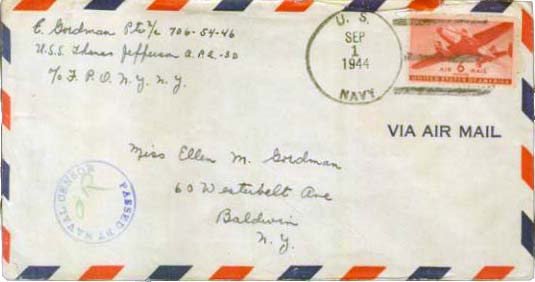 E. Gordman Ptr 3/c 706-54-46
U.S.S. Thomas Jefferson A.P.A.-30
c/o F.P.O. N.Y. N.Y.
U. S.
SEP
1
1944
NAVY
AIR 6 MAIL
UNITED STATES OF AMERICA
VIA AIR MAIL
Miss Ellen M. Gordman
60 Westerbelt Ave
Baldwin
N.Y.
PASSED BY NAVAL CENSOR